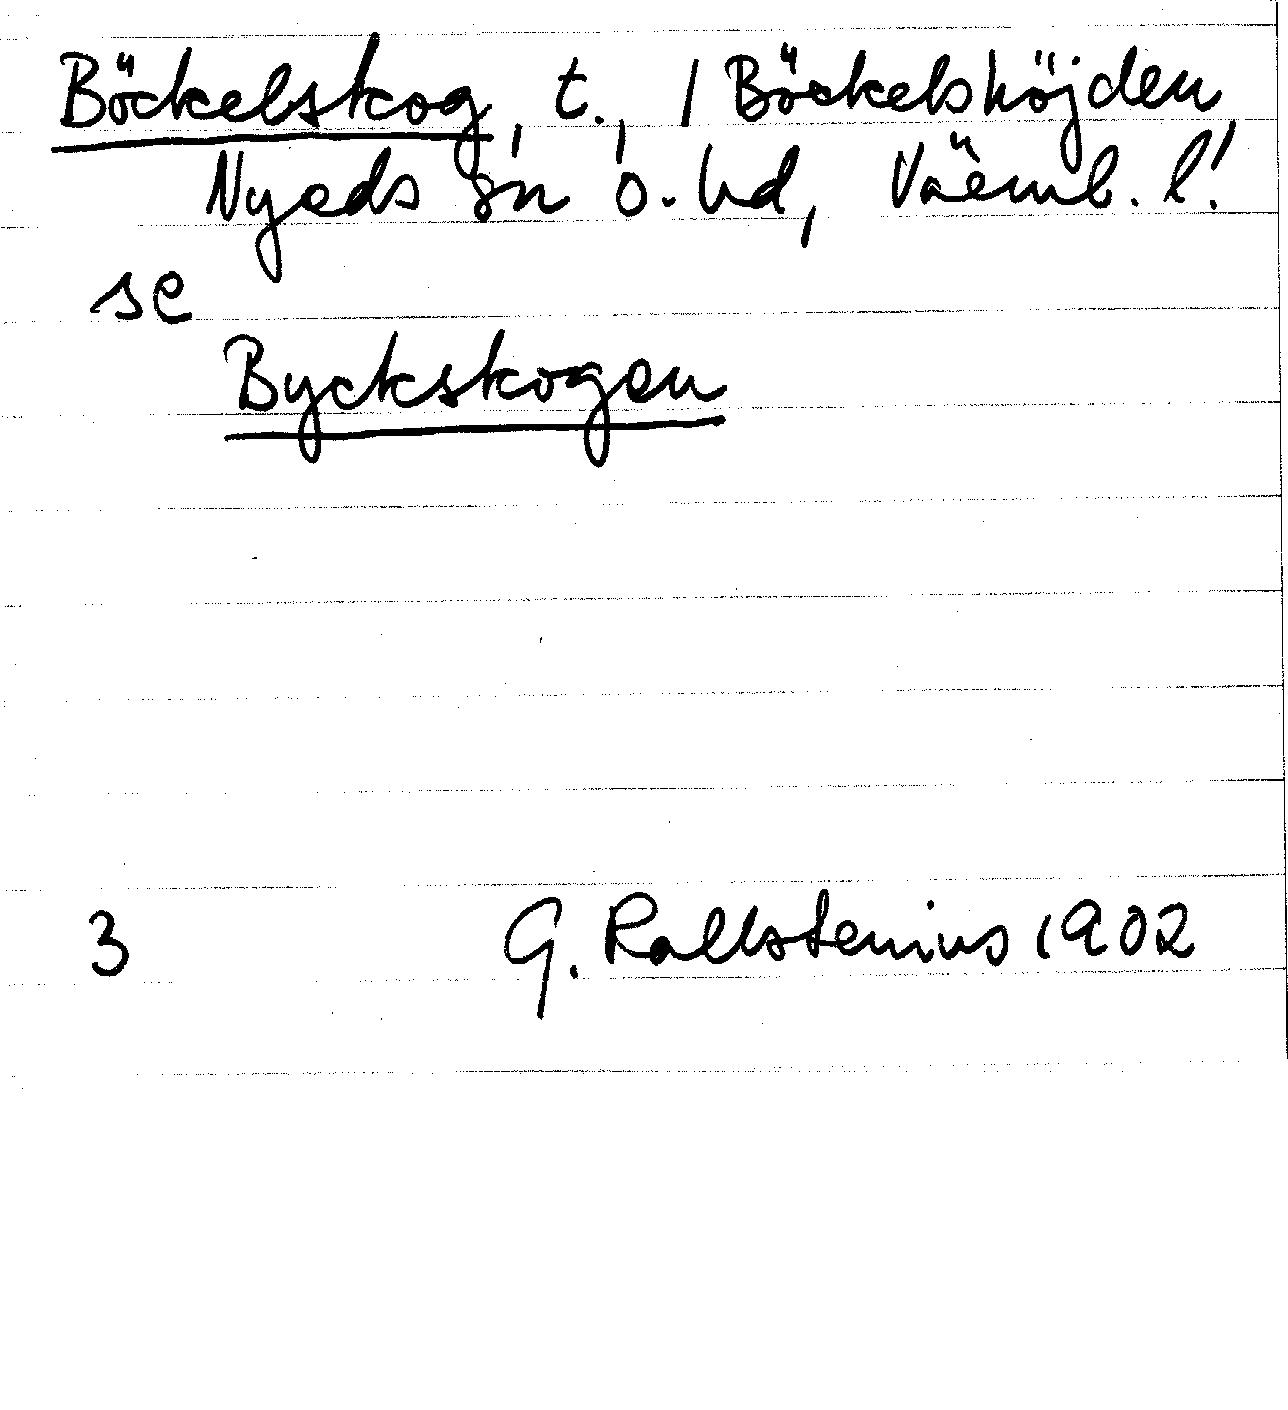 Böckelskog, t., / Böckelshöjden,
Nyeds sn o. hd, Värml. l!
se
Byckskogen
3 G. Kallstenius 1902